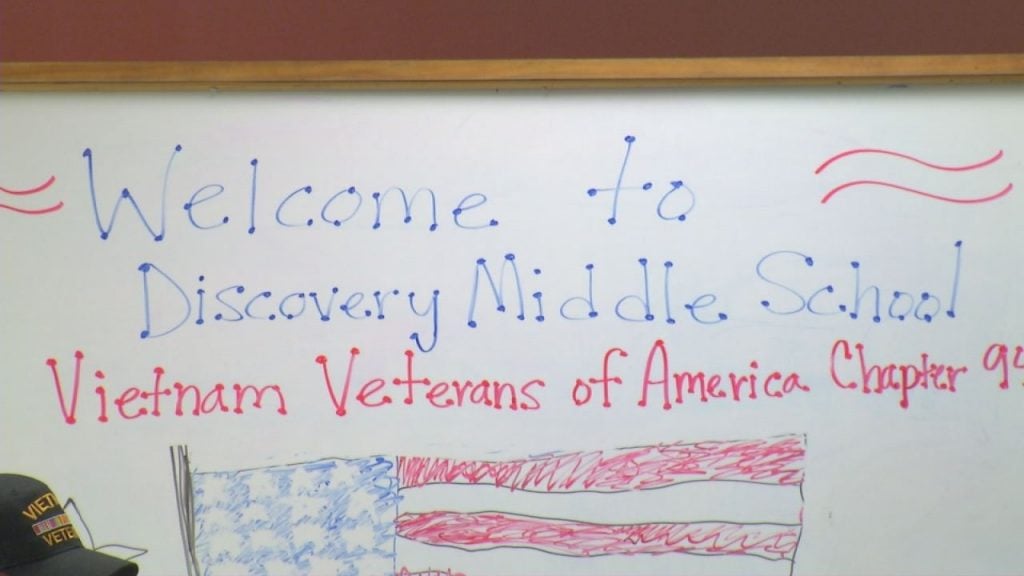 Welcome to
Discovery Middle School
Vietnam Veterans of America Chapter